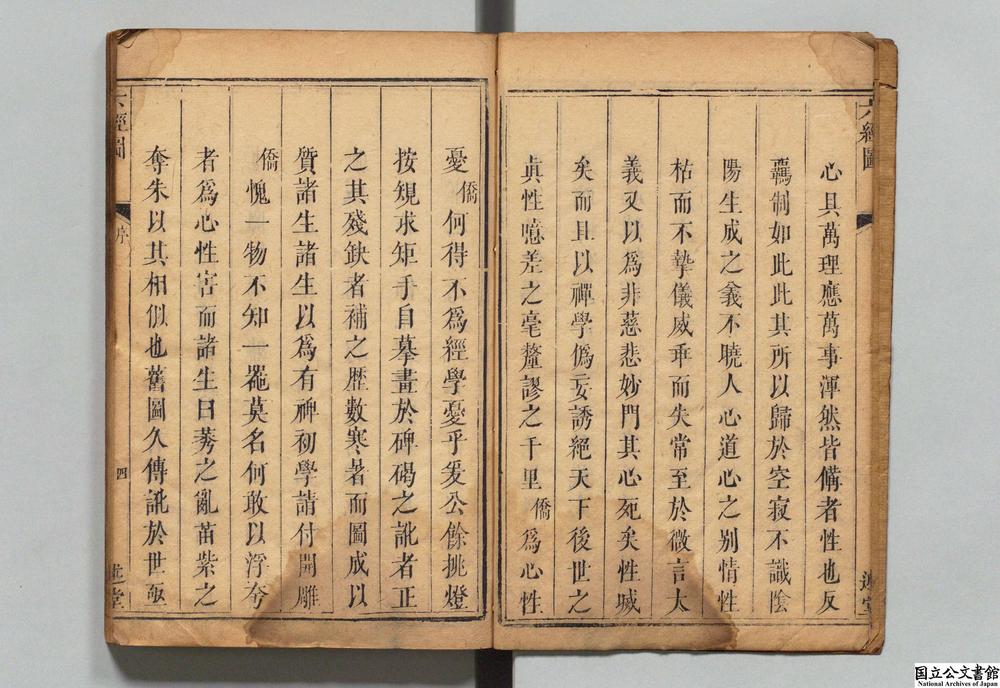 六經圖
心具萬理應萬事渾然皆備者性也反
羈制如此此其所以歸於空寂不識陰
陽生成之義不曉人心道心之别情性
枯而不摯儀威乖而失常至於微言大
義又以爲非慈悲妙門其心死矣性喊
矣而且以禪學僞妄誘絕天下後世之
眞性噫差之毫釐謬之千里僑爲心性
憂僑何得不爲經學憂乎爰公餘挑燈
按規求矩手自摹畫於碑碣之訛者正
之其殘缺者補之歷數寒暑而圖成以
質諸生諸生以爲有裨初學請付開雕
僑愧一物不知一罷莫名何敢以浮夸
者爲心性害而諸生曰莠之亂苗紫之
奪朱以其相似也舊圖久傳訛於世亟
六經圖
序
四
述堂
国立公文書館
National Archives of Japan